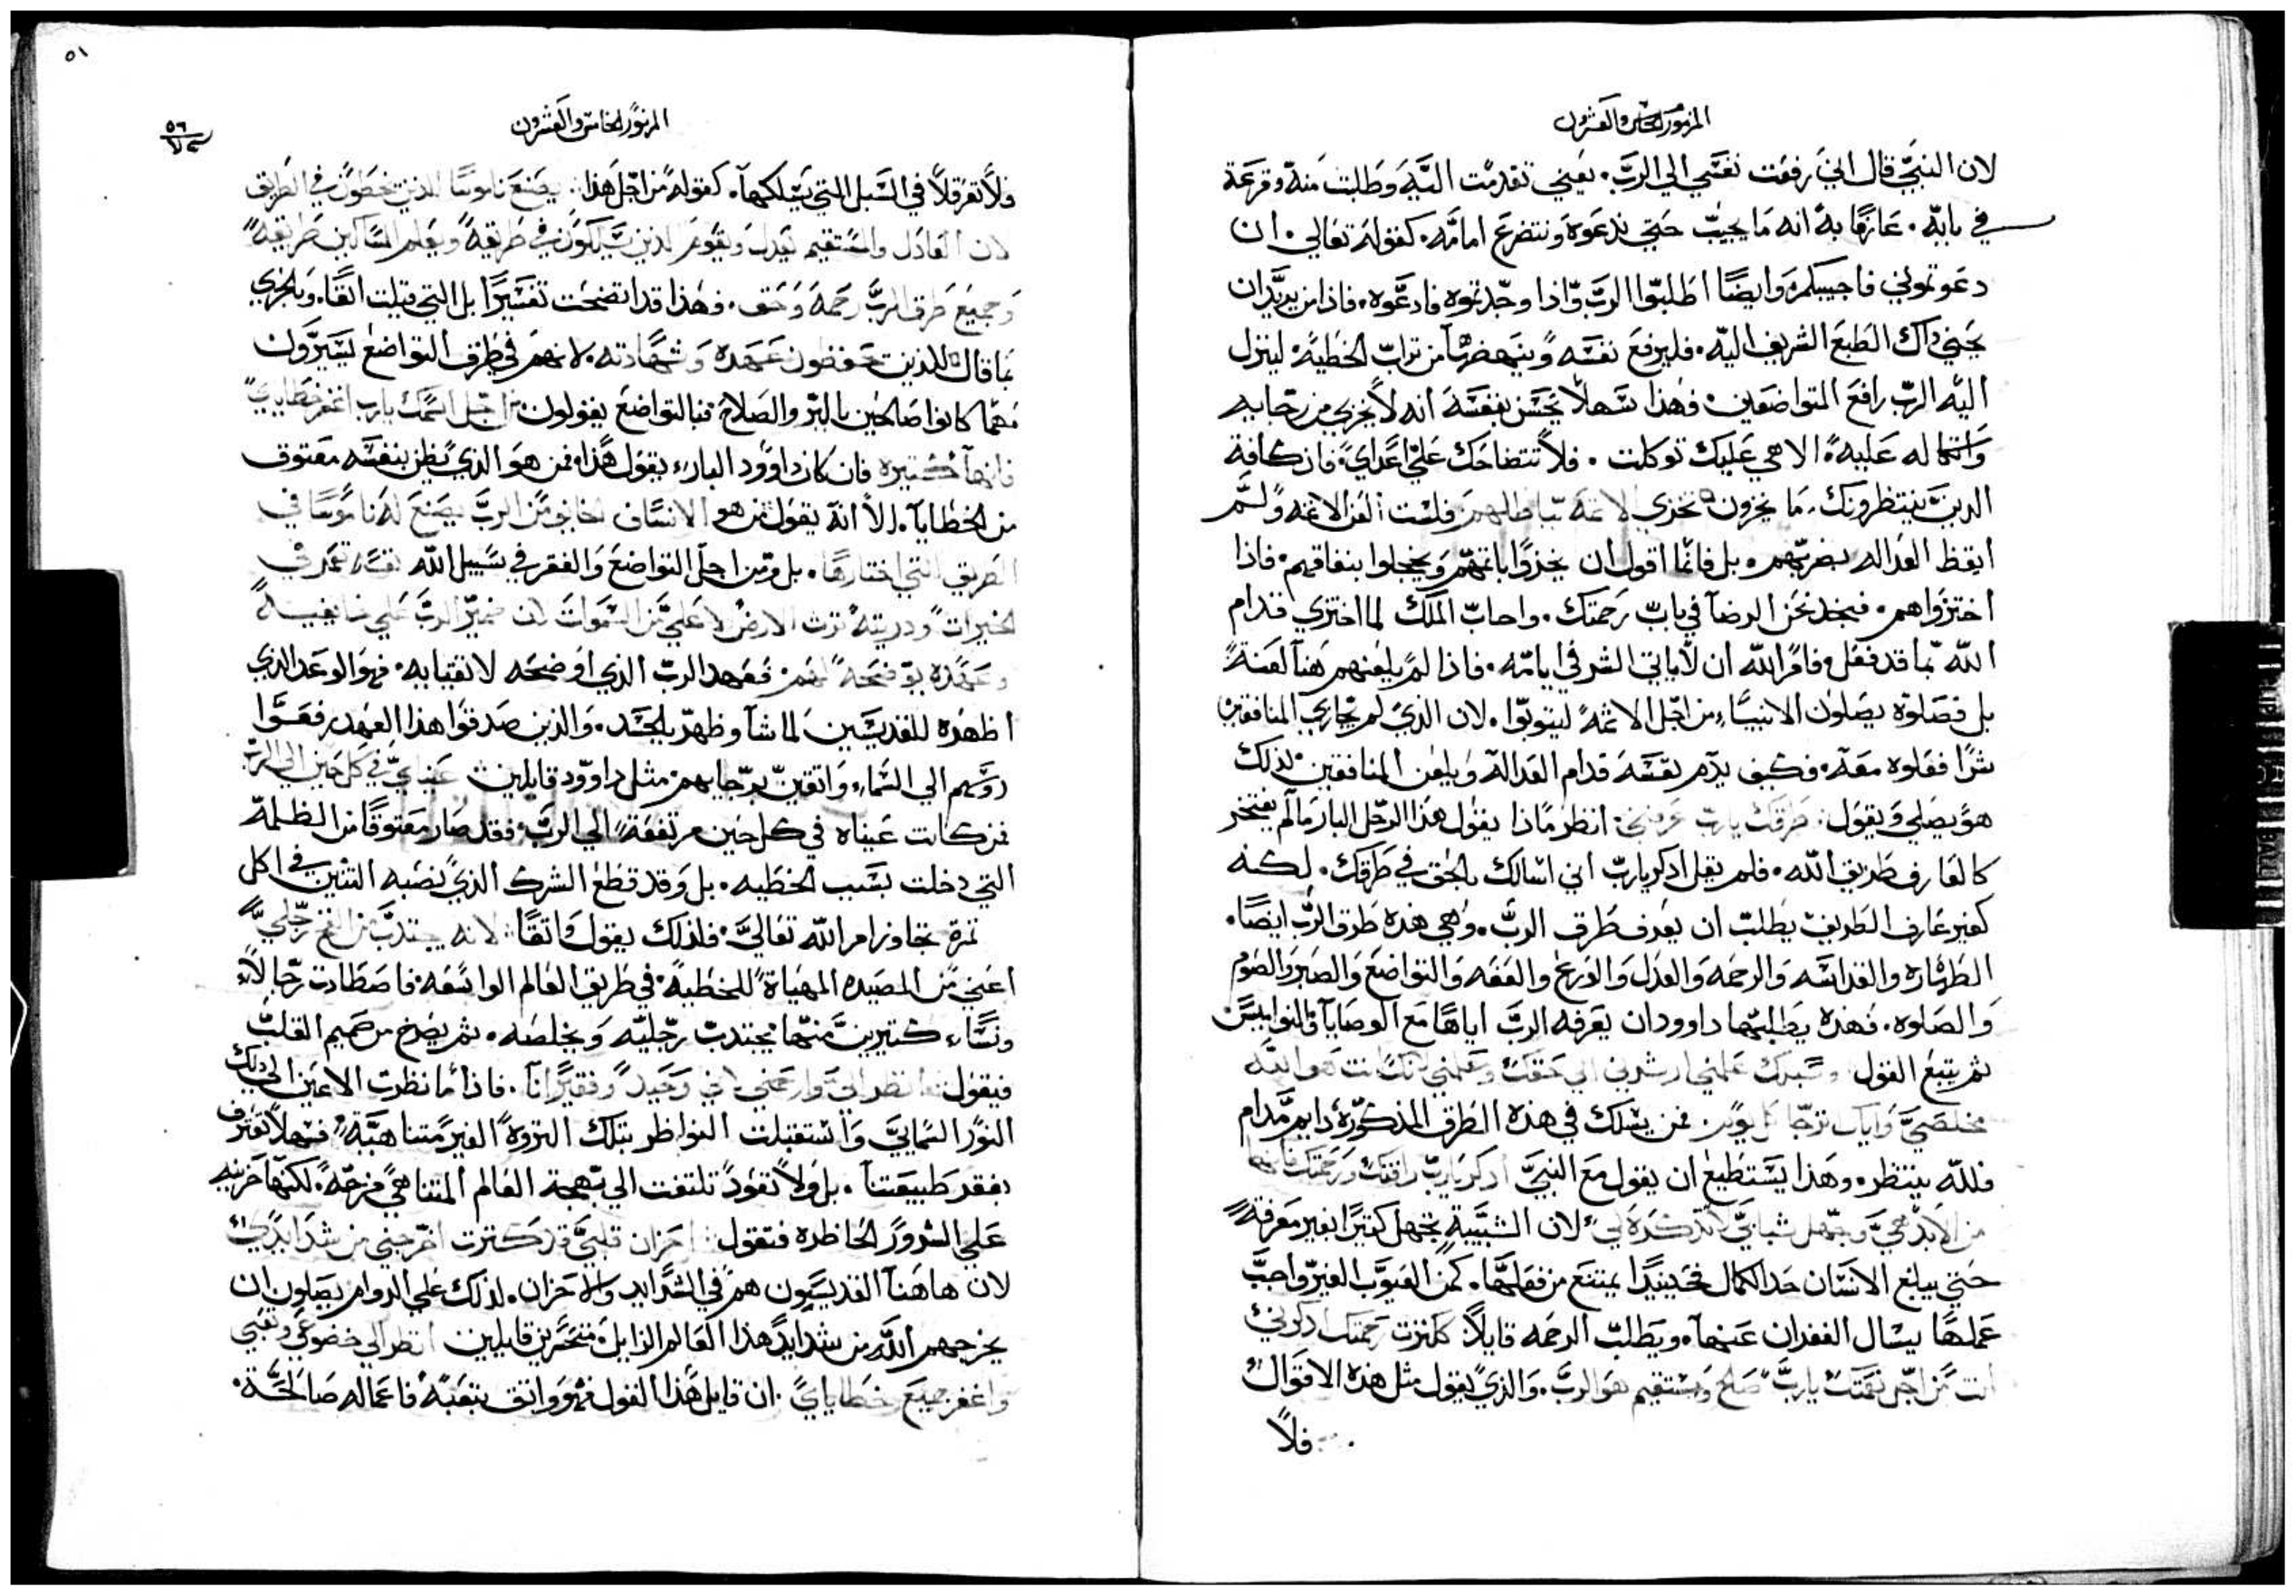 المزمور الخامس والعشرون
لان النبي قال اني رفعت نفسي الي الرب. يعني تقدمت اليه وطلبت منه وقرعة
في بابه. عارفا به انه ما يجيب حتي ندعوه ونتضرع امامه. كقوله تعالي. ان
دعوتموني فاجيبكم وايضا اطلبوا الرب واذا وجدتموه فادعوه. فاذا من يريد ان
يحني ذاك الطبع الشريف اليه. فليرفع نفسه وينهضها من تراب الخطية لينزل
اليه الرب رافع المتواضعين. فهذا سهلا يحسن بنفسه انه لا يخزي من رجايه
واتكاله عليه الاهي عليك توكلت. فلا تتضاحك علي اعداي. فان كافة
الذين ينتظرونك ما يخزون تخزي الاثمه بباطلهم فلست العن الاثمه ولم
ايقظ العداله بضربهم. بل فانما اقول ان يخزوا باثمهم ويخجلوا بنفاقهم. فاذا
اختزواهم. فنجد نحن الرضا في باب رحمتك. واحاب الملك لما اختزي قدام
الله بما قد فعل فامر الله ان لا ياتي الشر في ايامه. فاذا لم يلعنهم هنا لعنة
بل فصلوة يصلون الانبياء من اجل الاثمه ليتوبوا. لان الذي لم يجازي المنافقين
شرا فعلوه معه. فكيف يذم نفسه قدام العدالة ويلعن المنافقين. لذلك
هو يصلي ويقول. طرقك يارب عرفني. انظر ماذا يقول هذا الرجل البار ما لم يفتخر
كالعارف طريق الله. فلم يقل اذكر يارب اني اسالك بالحق في طرقك. لكنه
كغير عارف الطريق يطلب ان يعرف طرق الرب. وهي هذه طرق الرب ايضا.
الطهاره والقداسه والرحمه والعدل والورع والعفه والتواضع والصبر والصوم
والصلوه. فهذه يطلبها داوود ان يعرفه الرب اياها مع الوصايا والنواميس
ثم يتبع القول وسبلك علمني ارشدني الي حقك وعلمني لانك انت هو الله
مخلصي واياك ترجا كل يوم. فمن يسلك في هذه الطرق المذكوره دايم مدام
فلله ينتظر. وهذا يستطيع ان يقول مع النبي اذكر يارب رافتك ورحمتك فانها
من الابد هي وجهل شبابي لا تذكره لي لان الشبيبة تجهل كثيرا بغير معرفة
حتي يبلغ الانسان حد الكمال فحينيذا يمتنع من فعلها. كمن العيوب الغير واجب
عملها يسال الغفران عنها. ويطلب الرحمه قايلا كثرت رحمتك اذكرني
انت من اجل نعمتك يارب صالح ومستقيم هو الرب. والذي يقول مثل هذه الاقوال
فلا
٥١
المزمور الخامس والعشرون
ولا تعرقلا في السبل التي يسلكها. كقوله من اجل هذا يضع ناموسا للذين يخطون في الطريق
لان العادل والمستقيم يعدل ويقوم الذين يسلكون في طريقه ويعلم المساكين طريقه
وجميع طرق الرب رحمه وحق. وهذا قد اتضحت تفسيرا بل التي قيلت انفا. وبالحري
بما قال للذين يحفظون عهده وشهادته. لانهم في طرق التواضع يسيرون
مهما كانوا صالحين بالبر والصلاح فبالتواضع يقولون من اجل اسمك يارب اغفر خطاياي
فانها كثيره فان كان داوود البار يقول هذا. فمن هو الذي يظن بنفسه معتوق
من الخطايا. الا انه يقول من هو الانسان الخايف من الرب يضع له ناموسا في
الطريق التي اختارها. بل ومن اجل التواضع والفقر في سبيل الله نفسه تعمر في
الخيرات وذريته ترث الارض لا علي من السموات لان ضمير الرب علي خايفيه
وعهده يوضحه لهم. فعهد الرب الذي اوضحه لاتقيايه. فهو الوعد الذي
اظهره للقديسين لما شا وظهر بالجسد. والذين صدقوا هذا العهد رفعوا
روسهم الي السماء واثقين برجايهم مثل داوود قايلين عيناي في كل حين الي الرب
فمن كانت عيناه في كل حين مرتفعة الي الرب. فقد صار معتوقا من الظلمه
التي دخلت بسبب الخطيه. بل وقد قطع الشرك الذي نصبه التنين في اكل
ثمرة تجاوز امر الله تعالي. فلذلك يقول واثقا لانه يجتذب من الفخ رجلي
اعني من المصيده المهياة للخطية. في طريق العالم الواسعه. فاصطادت رجالا
ونساء كثيرين منها يجتذب رجليه ويخلصه. ثم يصرخ من صميم القلب
فيقول انظر الي وارحمني لاني وحيد وفقير انا. فاذا ما نظرت الاعين الي ذلك
النور السمايي واستقبلت النواظر بتلك الثروة الغير متناهية. فسهلا تعترف
بفقر طبيعتنا. بل ولا تعود تلتفت الي بهجة العالم المتناهي فرحة. لكنها حزينه
علي الشرور الحاظره فتقول احزان قلبي قد كثرت اخرجني من شدايدي
لان هاهنا القديسيون هم في الشدايد والاحزان. لذلك علي الدوام يصلون ان
يخرجهم الله من شدايد هذا العالم الزايل متحسرين قايلين انظر الي خضوعي وتعبي
واغفر جميع خطاياي. ان قايل هذا القول فهو واثق بتعبه. فاعماله صالحة.